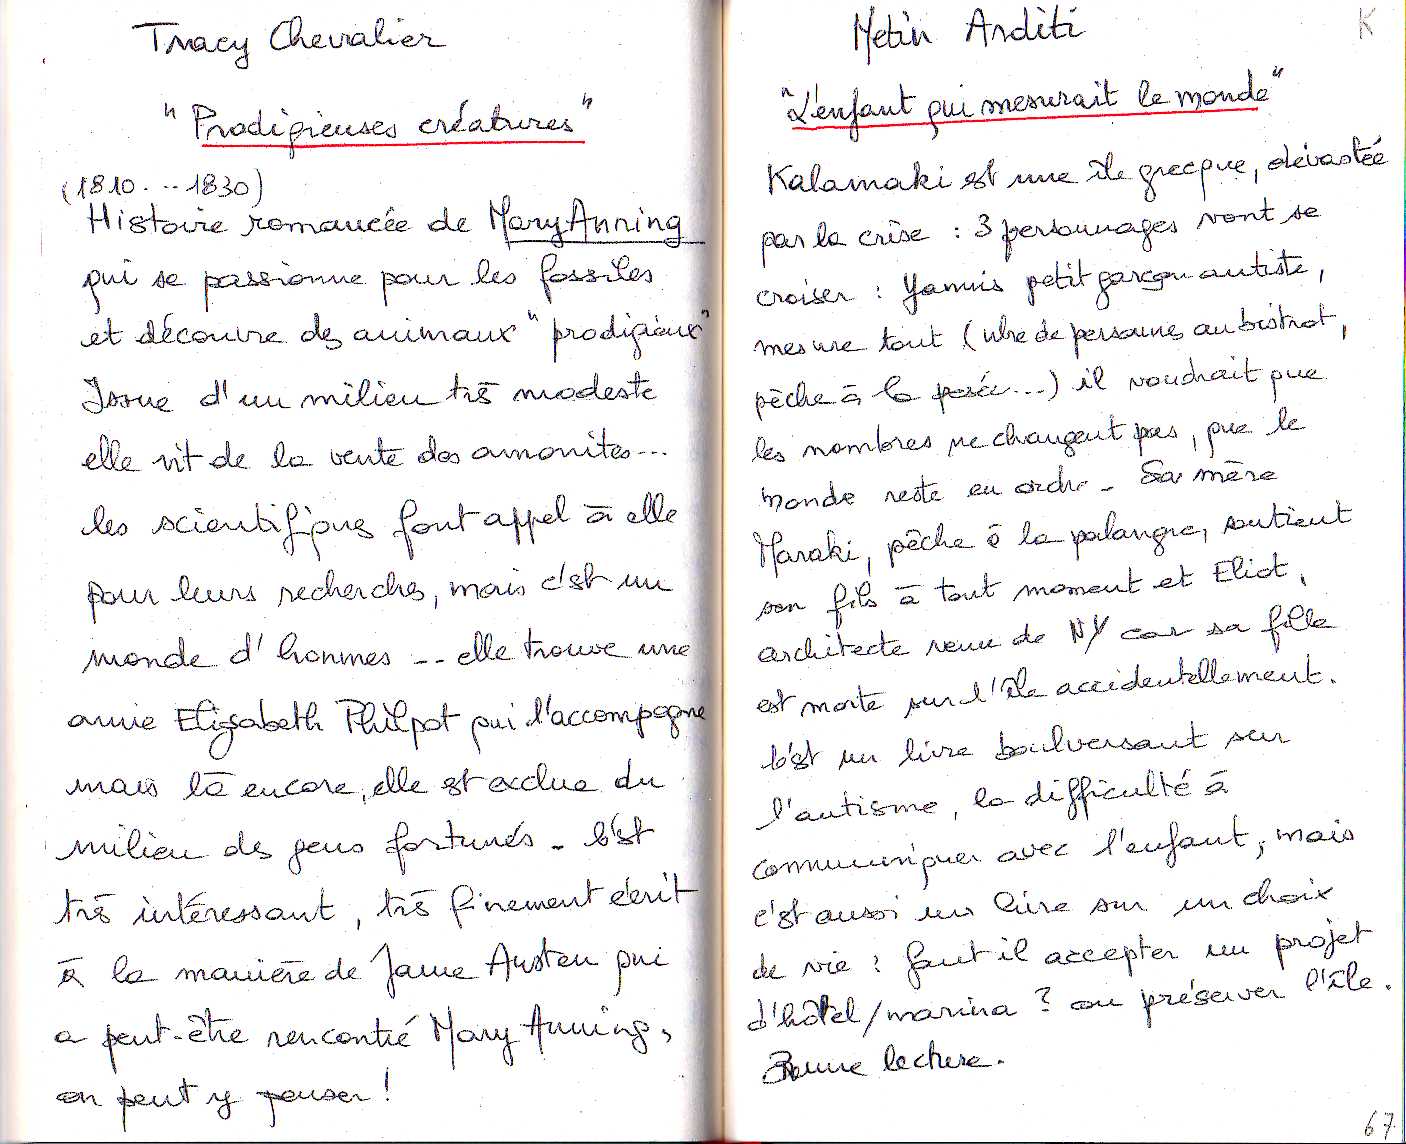 Tracy Chevalier
"Prodigieuses créatures"
(1810...1830)
Histoire romancée de Mary Anning
qui se passionne pour les fossiles
et découvre des animaux "prodigieux"
Issue d'un milieu très modeste
elle vit de la vente des amonites...
les scientifiques font appel à elle
pour leurs recherches, mais c'est un
monde d'hommes -- elle trouve une
amie Elizabeth Philpot qui l'accompagne
mais là encore, elle est exclue du
milieu des gens fortunés - C'est
très intéressant, très finement écrit
à la manière de Jane Austen qui
a peut-être rencontré Mary Anning,
on peut y penser !
Metin Arditi
K
"L'enfant qui mesurait le monde"
Kalamaki est une île grecque, dévastée
par la crise : 3 personnages vont se
croiser : Yannis petit garçon autiste,
mesure tout (nbre de personnes au bistrot,
pêche à la ...) il voudrait que
les nombres ne changent pas, que le
monde reste en ordre - Sa mère
Maraki, pêche à la palangre, soutient
son fils à tout moment et Eliot,
architecte venu de NY car sa fille
est morte sur l'île accidentellement.
C'est un livre boulversant sur
l'autisme, la difficulté à
communiquer avec l'enfant, mais
c'est aussi un livre sur un choix
de vie : faut il accepter un projet
d'hôtel/marina ? ou préserver l'île.
Bonne lecture.
67